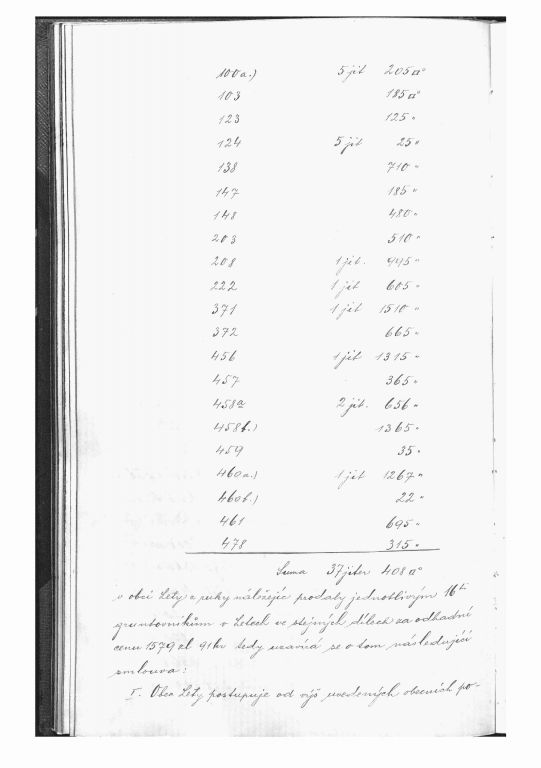 100a.) 5 jit 205□°
103 185□°
123 125 "
124 5 jit 25 "
138 710 "
147 185 "
148 480 "
203 510 "
208 1 jit. 945 "
222 1 jit 605 "
371 1 jit 1510 "
372 665 "
456 1 jit 1315 "
457 365 "
458a 2 jit. 656 "
458b.) 1365 "
459 35 "
460a.) 1 jit 1267 "
460b.) 22 "
461 695 "
478 315 "
Suma 37 jiter 408□°
v obci Lety z ruky náložejíc prodaly jednotlivým 16ti
gruntovníkům v Letech ve stejných dílech za odhadní
cenu 1579 zl 91 kr tedy uzavírá se o tom následující
smlouva:
I. Obec Lety postupuje od výš uvedených obecních po-